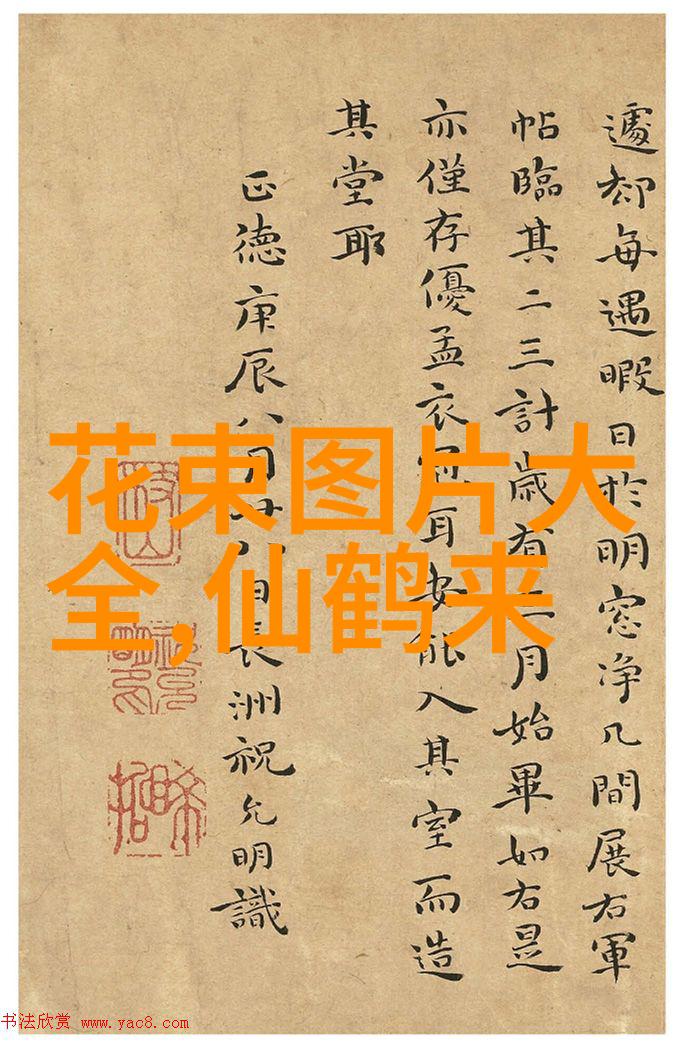 遽却每遇暇日於明窓净几間展右軍
帖臨其二三計歲有二月始畢如右是
亦僅存優孟衣冠耳安能入其室而造
其堂耶
正德庚辰八月廿八日長洲祝允明識
花束图片大
全,仙鹤来
书法欣赏 www.yac8.com